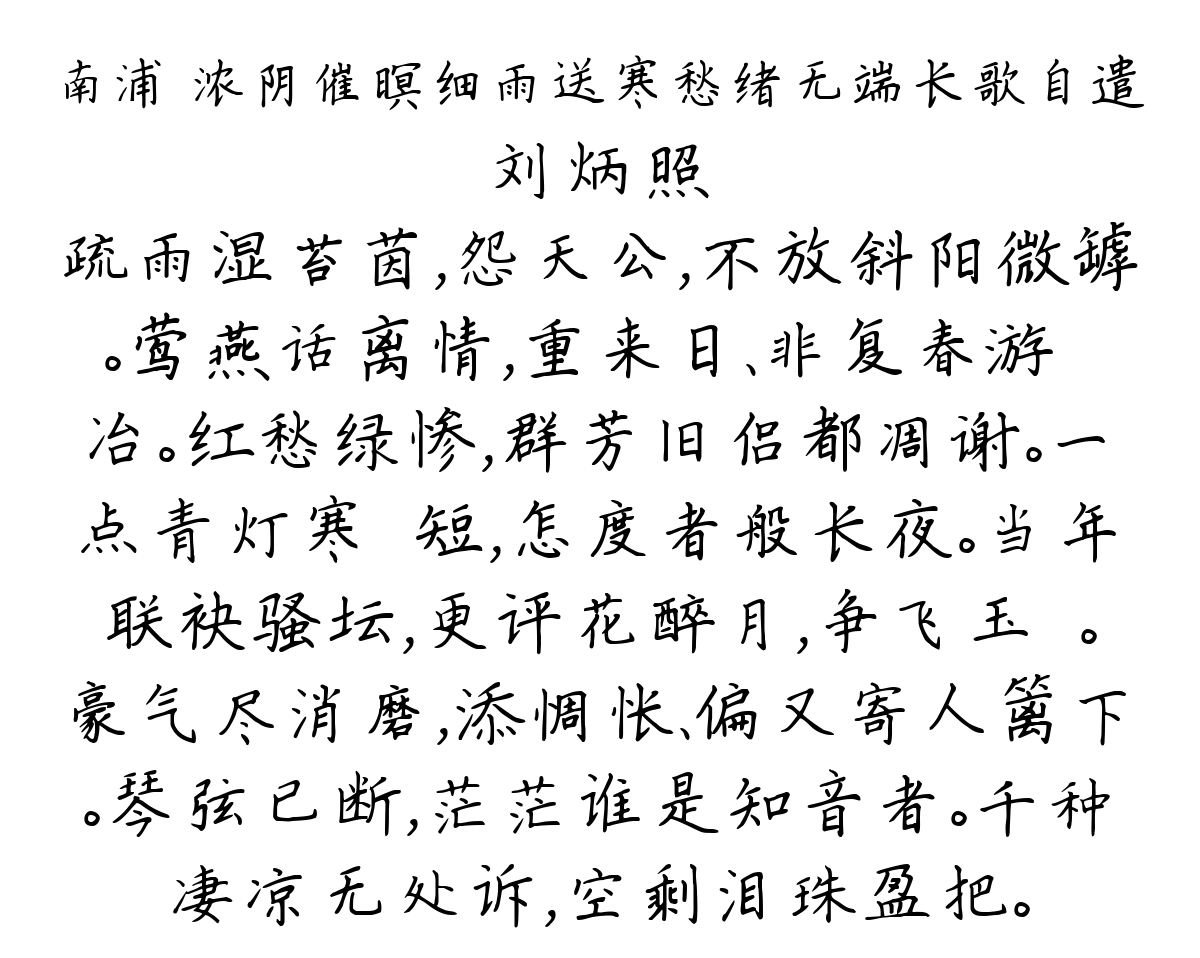 南浦 浓阴催暝细雨送寒愁绪无端长歌自遣
刘炳照
疏雨湿苔茵,怨天公,不放斜阳微罅
。莺燕话离情,重来日、非复春游
冶。红愁绿惨,群芳旧侣都凋谢。一
点青灯寒 短,怎度者般长夜。当年
联袂骚坛,更评花醉月,争飞玉 。
豪气尽消磨,添惆怅、偏又寄人篱下
。琴弦已断,茫茫谁是知音者。千种
凄凉无处诉,空剩泪珠盈把。